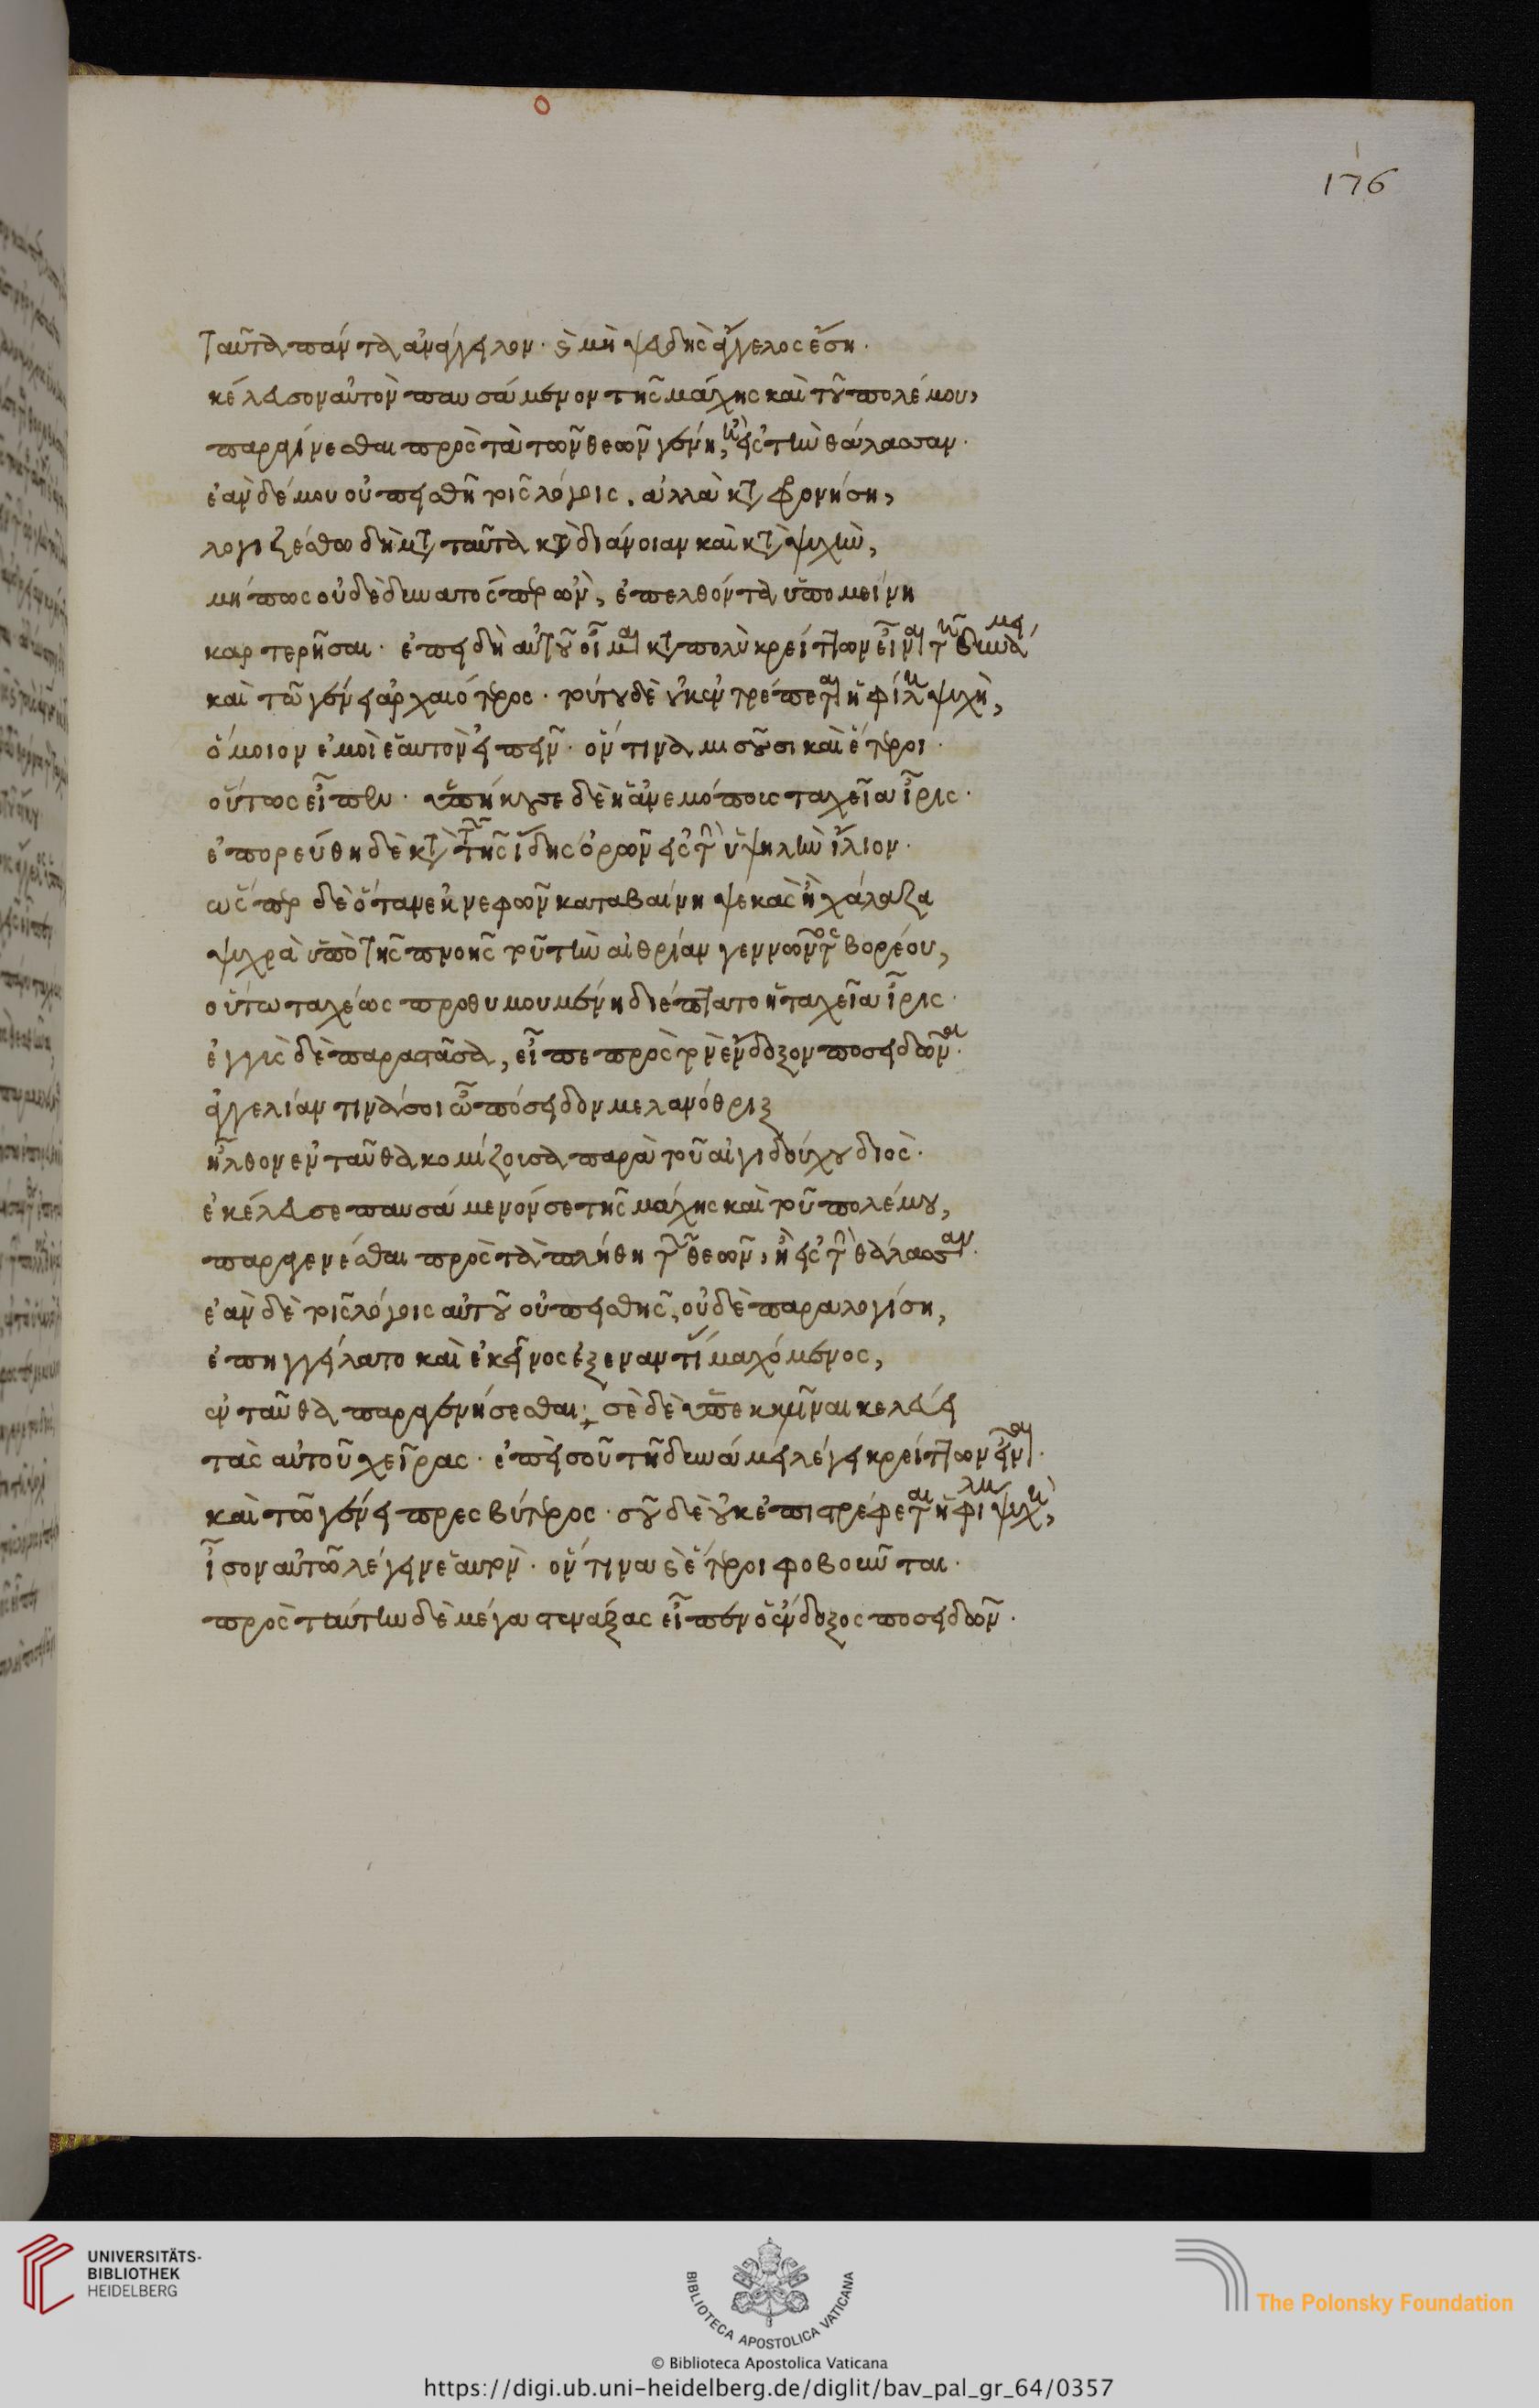 176
ταῦτα πάντα ἀνάγγειλον· καὶ μὴ ψευδὴς ἄγγελος ἔσῃ·
κέλευσον αὐτὸν παυσάμενον τῆς μάχης καὶ τοῦ πολέμου,
παραγίνεσθαι πρὸς τὰ τῶν θεῶν γένη, ἢ εἰς τὴν θάλασσαν·
ἐὰν δέ μου οὐ πεισθῆ τοῖς λόγοις, ἀλλὰ καταφρονήση,
λογιζέσθω δὴ μετὰ ταῦτα κατὰ διάνοιαν καὶ κατὰ ψυχὴν,
μήπως οὐδὲ δυνατός περ ὢν, ἐπελθόντα ὑπομείνη
καρτερῆσαι· ἐπειδὴ αὐτοῦ οἶμαι κατὰ πολὺ κρείττων εἶναι τῆ δυνάμει,
καὶ τῶ γένει ἀρχαιότερος· τούτου δὲ οὐκ ἐντρέπεται ἡ φίλη ψυχὴ,
ὅμοιον ἐμοὶ ἑαυτὸν εἰπεῖν· ὅντινα μισοῦσι καὶ ἕτεροι·
οὕτως εἶπεν· ὑπήκουσε δὲ ἡ ἀνεμόπους ταχεῖα ἶρις·
ἐπορεύθη δὲ κατὰ τῶν τῆς ἴδης ὀρῶν εἰς τὴν ὑψηλὴν ἴλιον·
ὥσπερ δὲ ὅταν ἐκ νεφῶν καταβαίνη ψεκὰς ἢ χάλαζα
ψυχρὰ ὑπὸ τῆς πνοῆς τοῦ τὴν αἰθρίαν γεννῶντος βορέου,
οὕτω ταχέως προθυμουμένη διέπτατο ἡ ταχεῖα ἶρις·
ἐγγὺς δὲ παραστᾶσα, εἶπε πρὸς τὸν ἔνδοξον ποσειδῶνα·
ἀγγελίαν τινά σοι ὦ πόσειδον μελανόθριξ
ἦλθον ἐνταῦθα κομίζουσα παρὰ τοῦ αἰγιδούχου διὸς·
ἐκέλευσε παυσάμενόν σε τῆς μάχης καὶ τοῦ πολέμου,
παραγενέσθαι πρὸς τὰ πλήθη τῶν θεῶν, ἢ εἰς τὴν θάλασσαν·
ἐὰν δὲ τοῖς λόγοις αὐτοῦ οὐ πεισθῆς, οὐδὲ παραλογίση,
ἐπηγγείλατο καὶ ἐκεῖνος ἐξεναντίας μαχόμενος,
ἐνταῦθα παραγενήσεσθαι· σὲ δὲ ὑπεκκλῖναι κελεύει
τὰς αὐτοῦ χεῖρας· ἐπεὶ σοῦ τῆ δυνάμει λέγει κρείττων εἶναι·
καὶ τῶ γένει πρεσβύτερος· σοῦ δὲ οὐκ ἐπιστρέφεται ἡ φίλη ψυχὴ,
ἶσον αὐτῶ λέγειν ἑαυτὸν· ὅντινα καὶ ἕτεροι φοβοῦνται·
πρὸς ταύτην δὲ μέγα στενάξας εἶπεν ὁ ἔνδοξος ποσειδῶν·
UNIVERSITÄTS-
BIBLIOTHEK
HEIDELBERG
BIBLIOTECA APOSTOLICA VATICANA
The Polonsky Foundation
© Biblioteca Apostolica Vaticana
https://digi.ub.uni-heidelberg.de/diglit/bav_pal_gr_64/0357